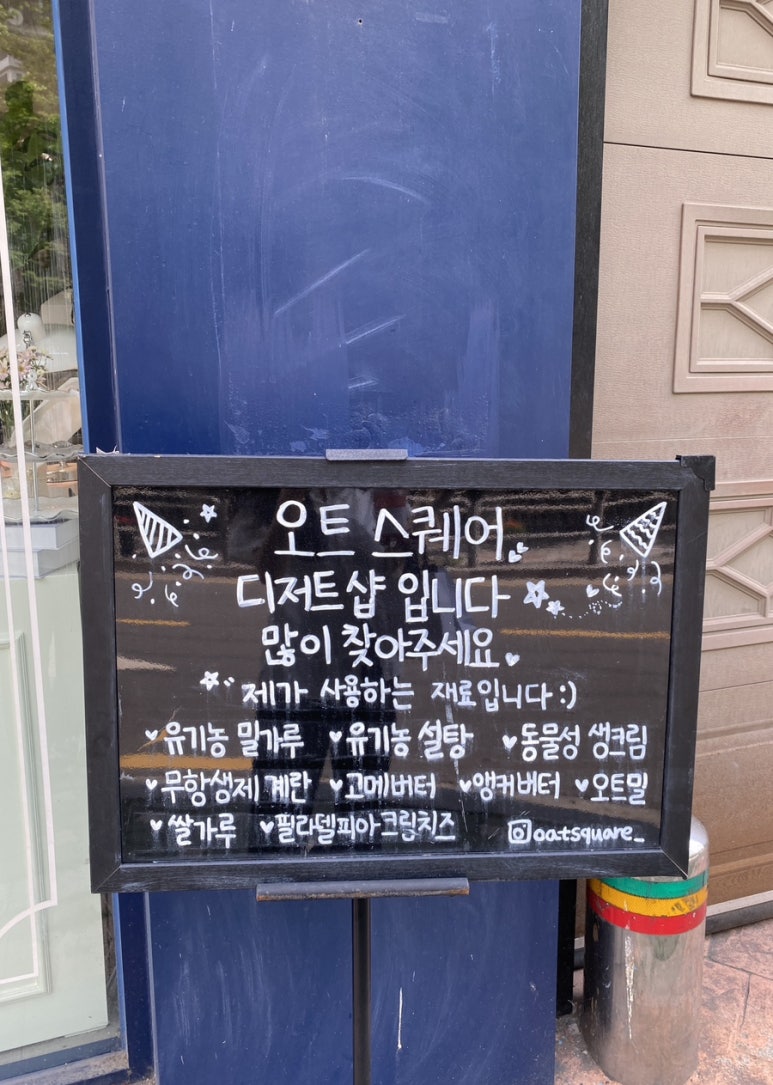 오트 스퀘어
디저트샵 입니다
많이 찾아주세요
제가 사용하는 재료입니다 :)
유기농 밀가루 유기농 설탕 동물성 생크림
무항생제 계란 고메버터 앵커버터 오트밀
쌀가루 필라델피아크림치즈 oatsquare_